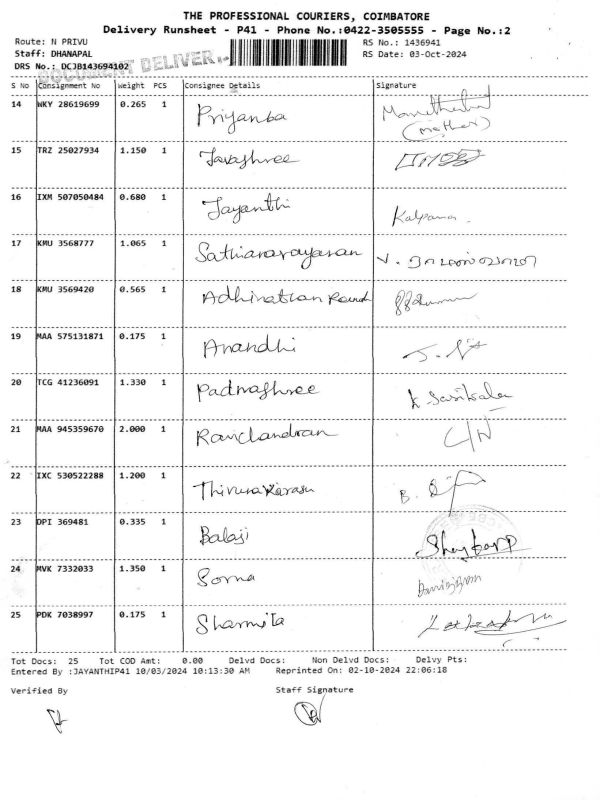 THE PROFESSIONAL COURIERS, COIMBATORE
Delivery Runsheet - P41 - Phone No.:0422-3505555 - Page No.:2
Route: N PRIVU RS No.: 1436941
Staff: DHANAPAL RS Date: 03-Oct-2024
DRS No.: DCJB143694102
DOCUMENT DELIVER
S No Consignment No Weight PCS Consignee Details Signature
14 WKY 28619699 0.265 1 Priyanka
(mother)
15 TRZ 25027934 1.150 1 Javashree
16 IXM 507050484 0.680 1 Jayanthi Kalpana
17 KMU 3568777 1.065 1 Sathianarayanan
18 KMU 3569420 0.565 1
19 MAA 575131871 0.175 1 Anandhi
20 TCG 41236091 1.330 1 Padmashree K Sasikala
21 MAA 945359670 2.000 1 Ravichandran
22 IXC 530522288 1.200 1 Thirunavkarasu
23 DPI 369481 0.335 1 Balaji
24 MVK 7332033 1.350 1 Sorna
25 PDK 7038997 0.175 1 Sharmila
Tot Docs: 25 Tot COD Amt: 0.00 Delvd Docs: Non Delvd Docs: Delvy Pts:
Entered By :JAYANTHIP41 10/03/2024 10:13:30 AM Reprinted On: 02-10-2024 22:06:18
Verified By Staff Signature